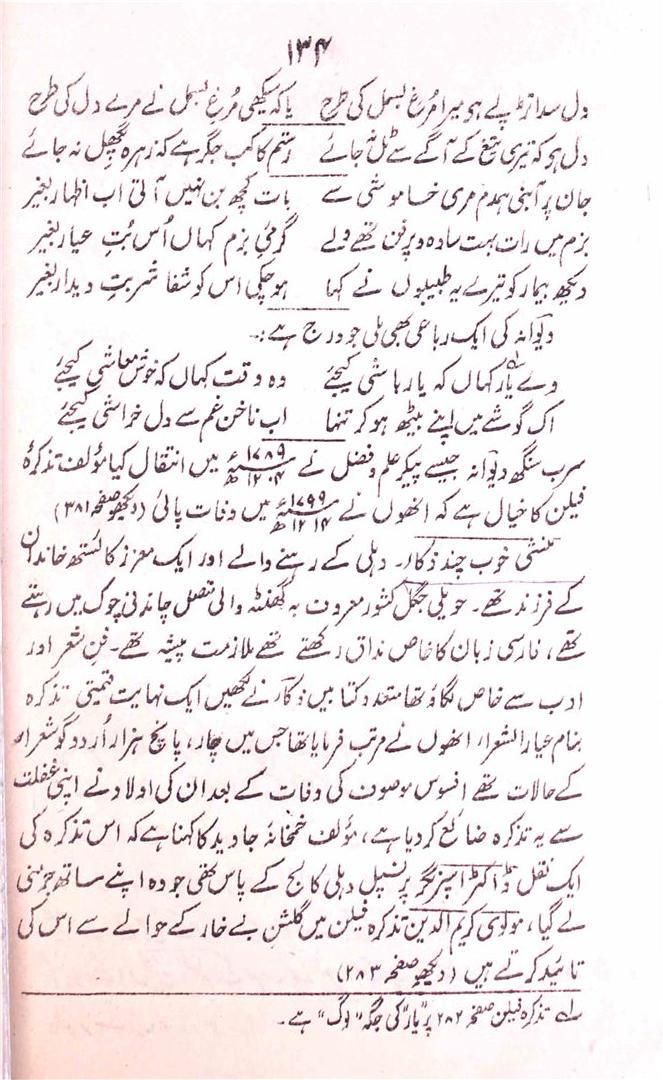 ۱۳۴
دل سدا تڑپے ہو میرا مُرغِ بسمل کی طرح یا کہ سیکھی مُرغ بسمل نے مرے دل کی طرح
دل ہو کہ تیری تیغ کے آگے سے ٹل نہ جائے رستم کا کب جگر ہے کہ زہرہ پگھل نہ جائے
جان پر آبنی ہمدم مری خاموشی سے بات کچھ بن نہیں آتی اب اظہار بغیر
بزم میں رات بہت سادہ و پرفن تھے ولے گرمیٔ بزم کہاں اُس بُتِ عیار بغیر
دیکھ بیمار کو تیرے یہ طبیبوں نے کہا ہو چکی اس کو شفا شربتِ دیدار بغیر
دیوانہ کی ایک رباعی بھی ملی جو درج ہے:۔
وے یار کہاں کہ یار باشی کیجئے وہ وقت کہاں کہ خوش معاشی کیجئے
اک گوشے میں اپنے بیٹھ ہو کر تنہا اب ناخن غم سے دل خراشی کیجئے
سرب سنگھ دیوانہ جیسے پیکر علم و فضل نے ۱۷۸۹ء ۱۲۰۴ھ میں انتقال کیا مؤلف تذکرۂ
فیلن کا خیال ہے کہ انھوں نے ۱۷۹۹ء ۱۲۱۴ھ میں وفات پائی (دیکھو صفحہ ۳۸۱)
منشی خوب چند ذکا۔ دہلی کے رہنے والے اور ایک معزز کائستھ خاندان
کے فرزند تھے۔ حویلی جگل کشور معروف بہ گھنٹہ والی متصل چاندنی چوک میں رہتے
تھے، فارسی زبان کا خاص مذاق رکھتے تھے ملازمت پیشہ تھے۔ فنِ شعر اور
ادب سے خاص لگاؤ تھا متعدد کتابیں ذکا نے لکھیں ایک نہایت قیمتی تذکرہ
بنام عیار الشعراء انھوں نے مرتب فرمایا تھا جس میں چار، پانچ ہزار اُردو گو شعراء
کے حالات تھے افسوس موصوف کی وفات کے بعد ان کی اولاد نے اپنی غفلت
سے یہ تذکرہ ضائع کر دیا ہے، مؤلف خمخانۂ جاوید کا کہنا ہے کہ اس تذکرہ کی
ایک نقل ڈاکٹر اسپرنگر پرنسپل دہلی کالج کے پاس تھی جو وہ اپنے ساتھ جرمنی
لے گیا، مولوی کریم الدین تذکرہ فیلن میں گلشن بے خار کے حوالے سے اس کی
تائید کرتے ہیں (دیکھو صفحہ ۲۸۳)
۱ تذکرہ فیلن صفحہ ۲۸۲ پر "یار" کی جگہ "لوگ" ہے۔